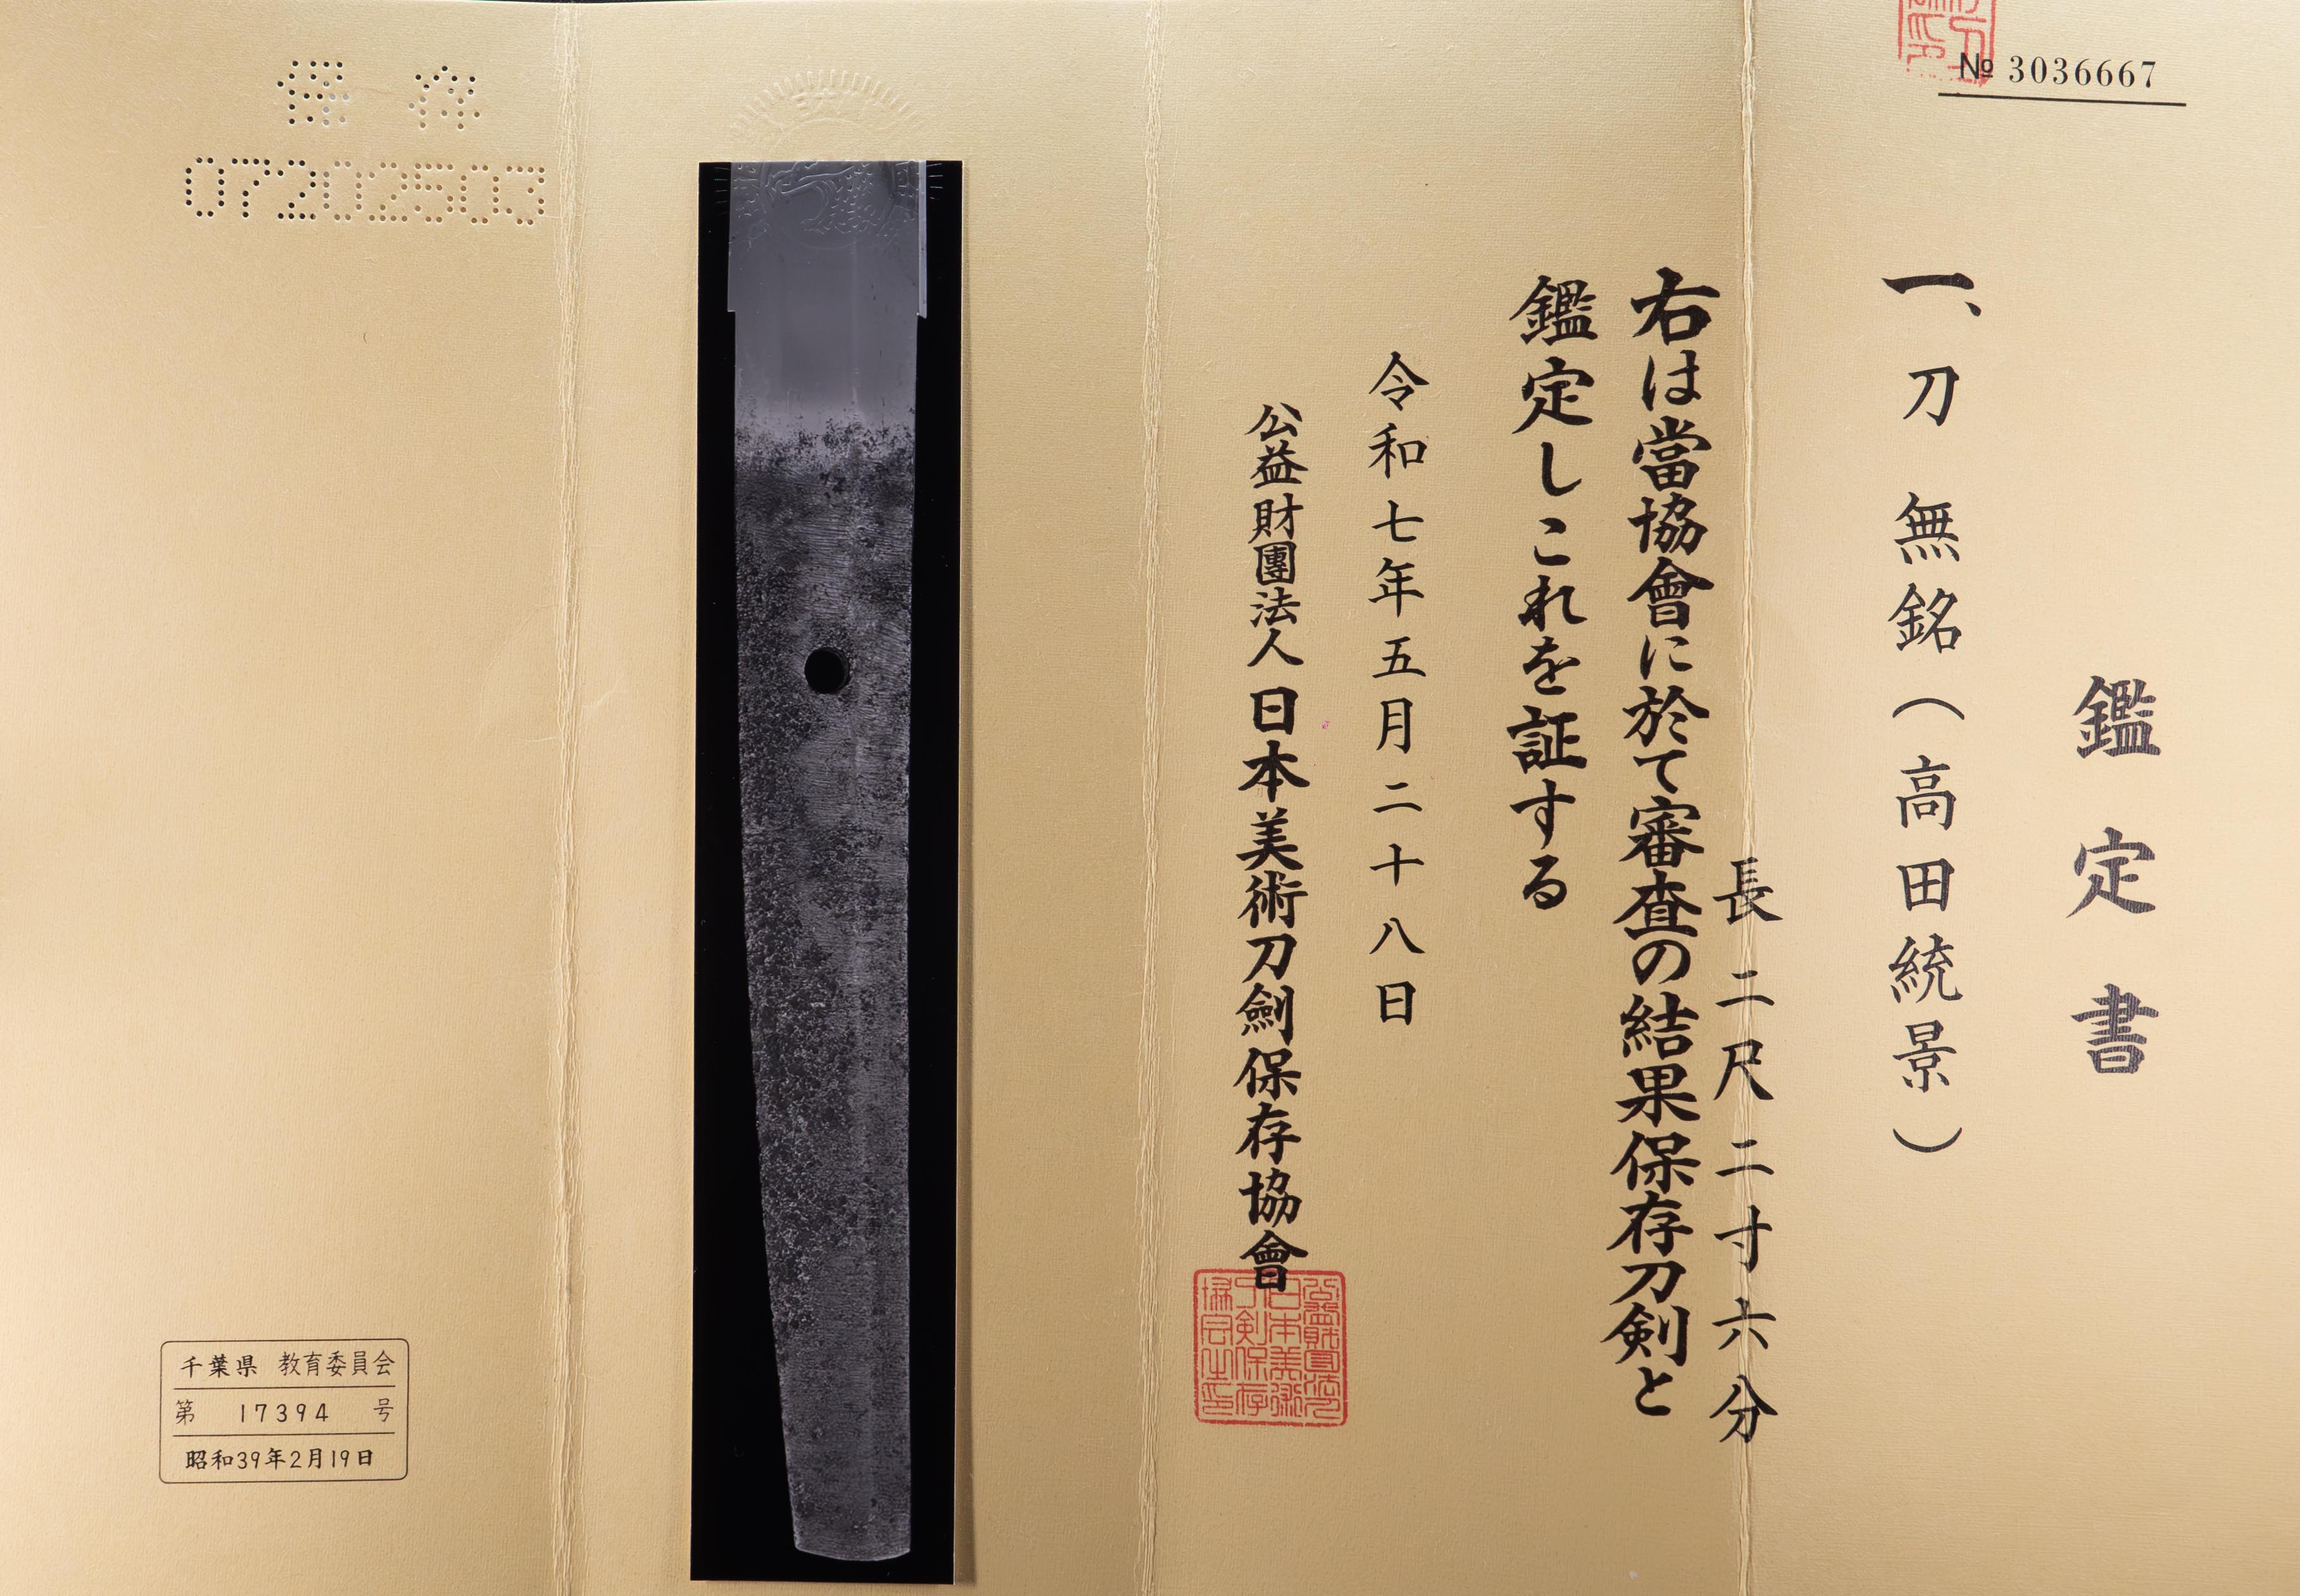 № 3036667
鑑定書
一、刀 無銘（高田統景）
長 二尺二寸六分
右は當協會に於て審査の結果保存刀剣と
鑑定しこれを証する
令和七年五月二十八日
公益財團法人日本美術刀劍保存協會
保存
07202503
千葉県 教育委員会
第 17394 号
昭和39年2月19日